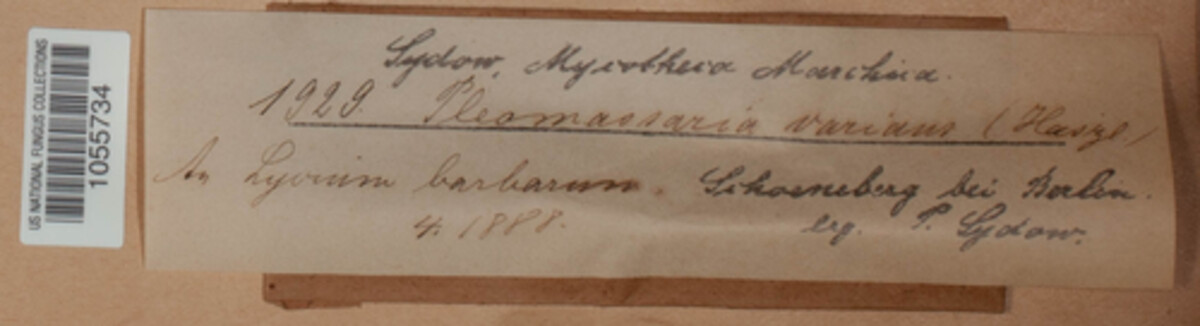 US NATIONAL FUNGUS COLLECTIONS
1055734
Sydow, Mycotheca Marchica.
1929. Pleomassaria varians (Hazsl.)
An Lycium barbarum. Schoeneberg bei Berlin.
4. 1888. leg. P. Sydow.